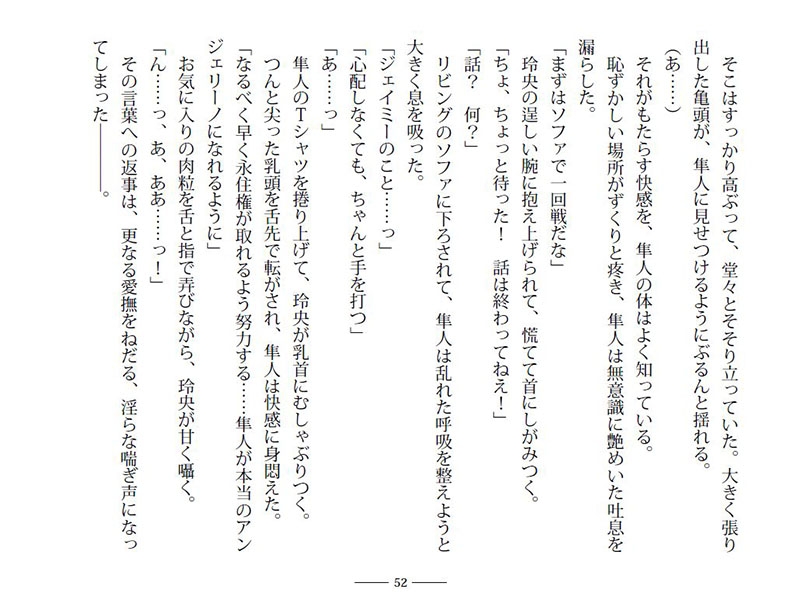 そこはすっかり高ぶって、堂々とそそり立っていた。大きく張り
出した亀頭が、隼人に見せつけるようにぶるんと揺れる。
（あ……）
それがもたらす快感を、隼人の体はよく知っている。
恥ずかしい場所がずくりと疼き、隼人は無意識に艶めいた吐息を
漏らした。
「まずはソファで一回戦だな」
玲央の逞しい腕に抱え上げられて、慌てて首にしがみつく。
「ちょ、ちょっと待った！　話は終わってねえ！」
「話？　何？」
リビングのソファに下ろされて、隼人は乱れた呼吸を整えようと
大きく息を吸った。
「ジェイミーのこと……っ」
「心配しなくても、ちゃんと手を打つ」
「あ……っ」
隼人のＴシャツを捲り上げて、玲央が乳首にむしゃぶりつく。
つんと尖った乳頭を舌先で転がされ、隼人は快感に身悶えた。
「なるべく早く永住権が取れるよう努力する……隼人が本当のアン
ジェリーノになれるように」
お気に入りの肉粒を舌と指で弄びながら、玲央が甘く囁く。
「ん……っ、あ、ああ……っ！」
その言葉への返事は、更なる愛撫をねだる、淫らな喘ぎ声になっ
てしまった――――。
52